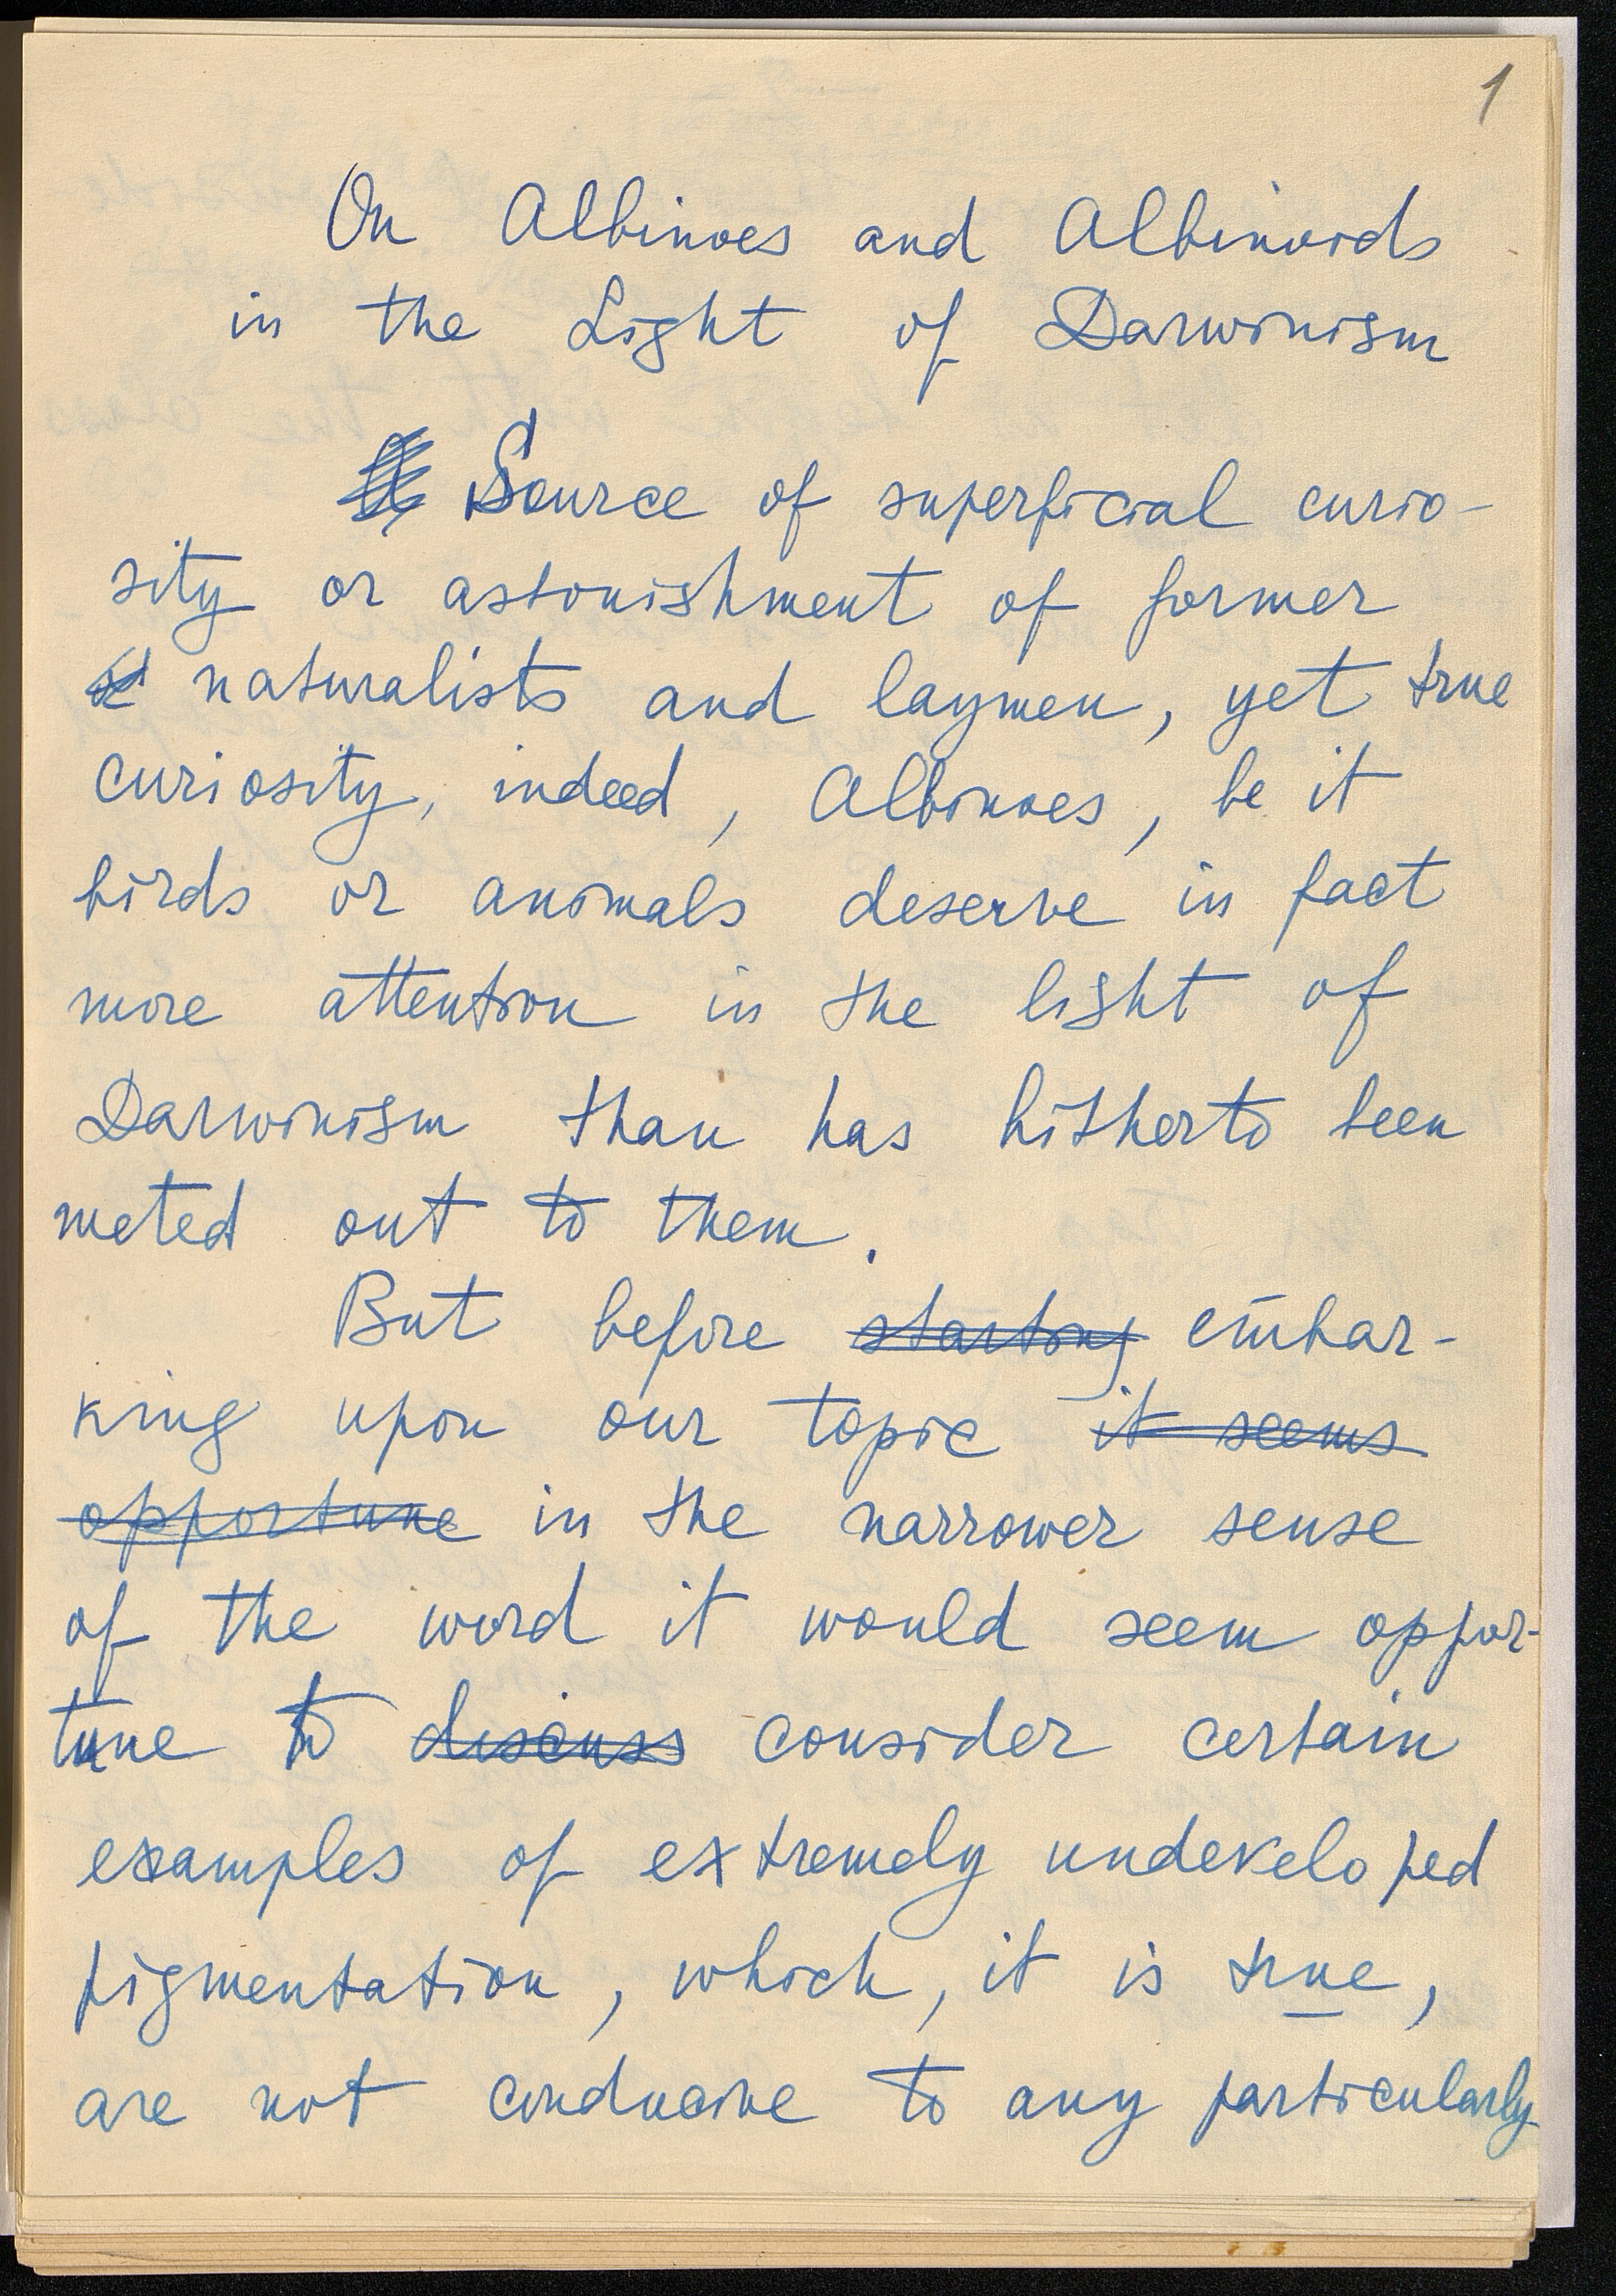 1
On Albinoes and Albinoids
in the Light of Darwinism
Source of superficial curio-
sity or astonishment of former
naturalists and laymen, yet true
curiosity, indeed, Albinoes, be it
birds or animals deserve in fact
more attention in the light of
Darwinism than has hitherto been
meted out to them.
But before starting embar-
king upon our topic it seems
opportune in the narrower sense
of the word it would seem oppor-
tune to discuss consider certain
examples of extremely undeveloped
pigmentation, which, it is true,
are not conducive to any particularly